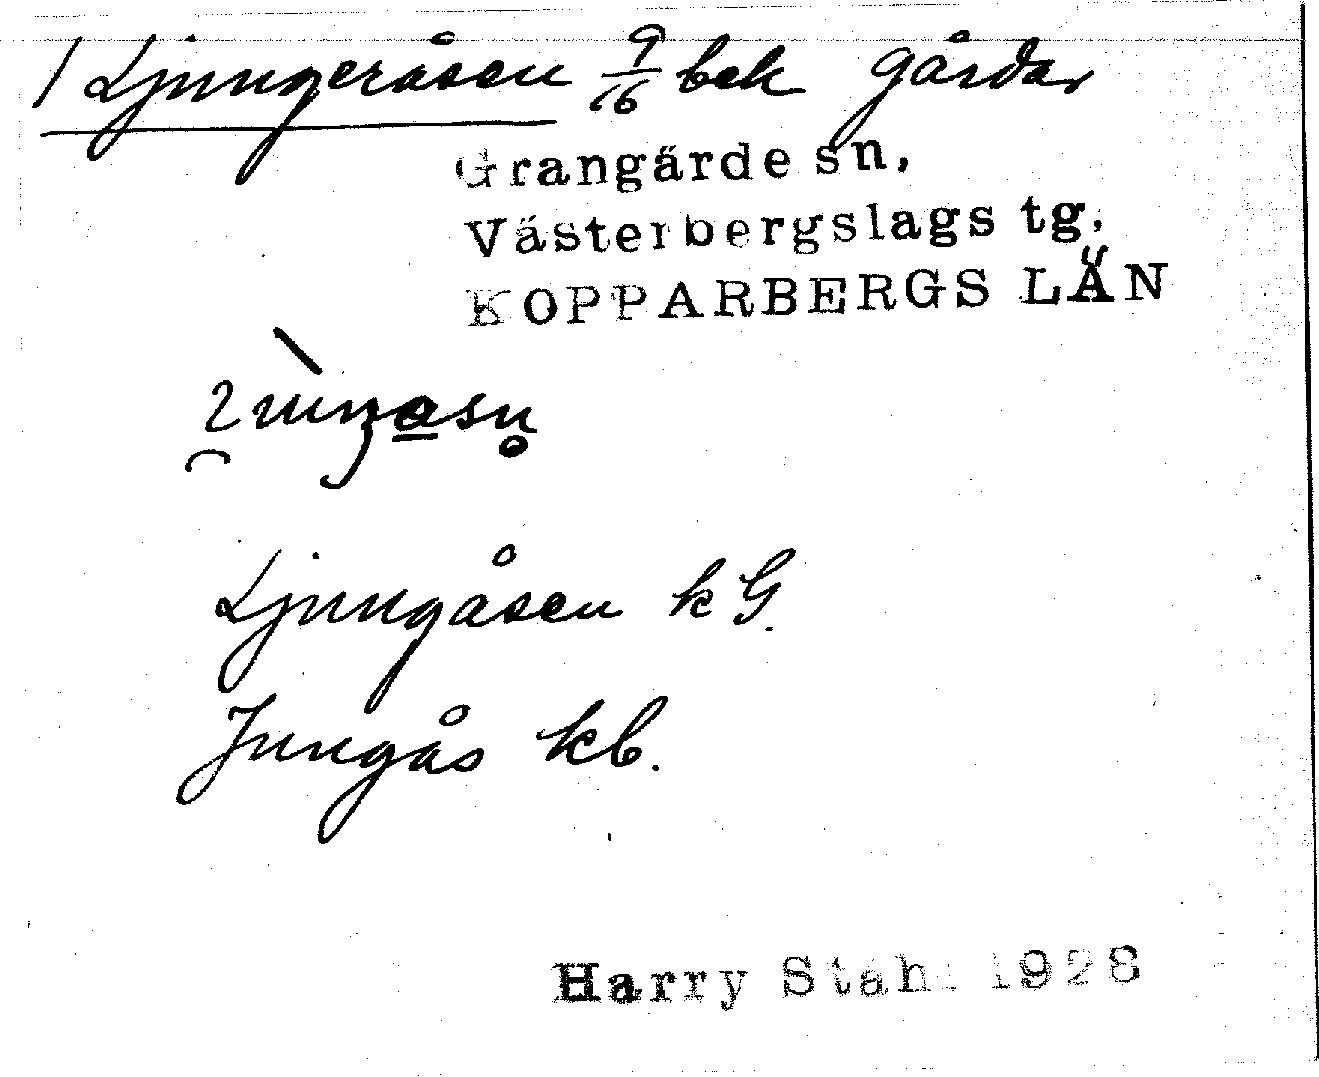 1 Ljungeråsen 9/16 bek gårdar
Grangärde sn,
Västerbergslags tg.
KOPPARBERGS LÄN
Ljungåsen kG.
Jungås kb.
Harry Ståhl 1928